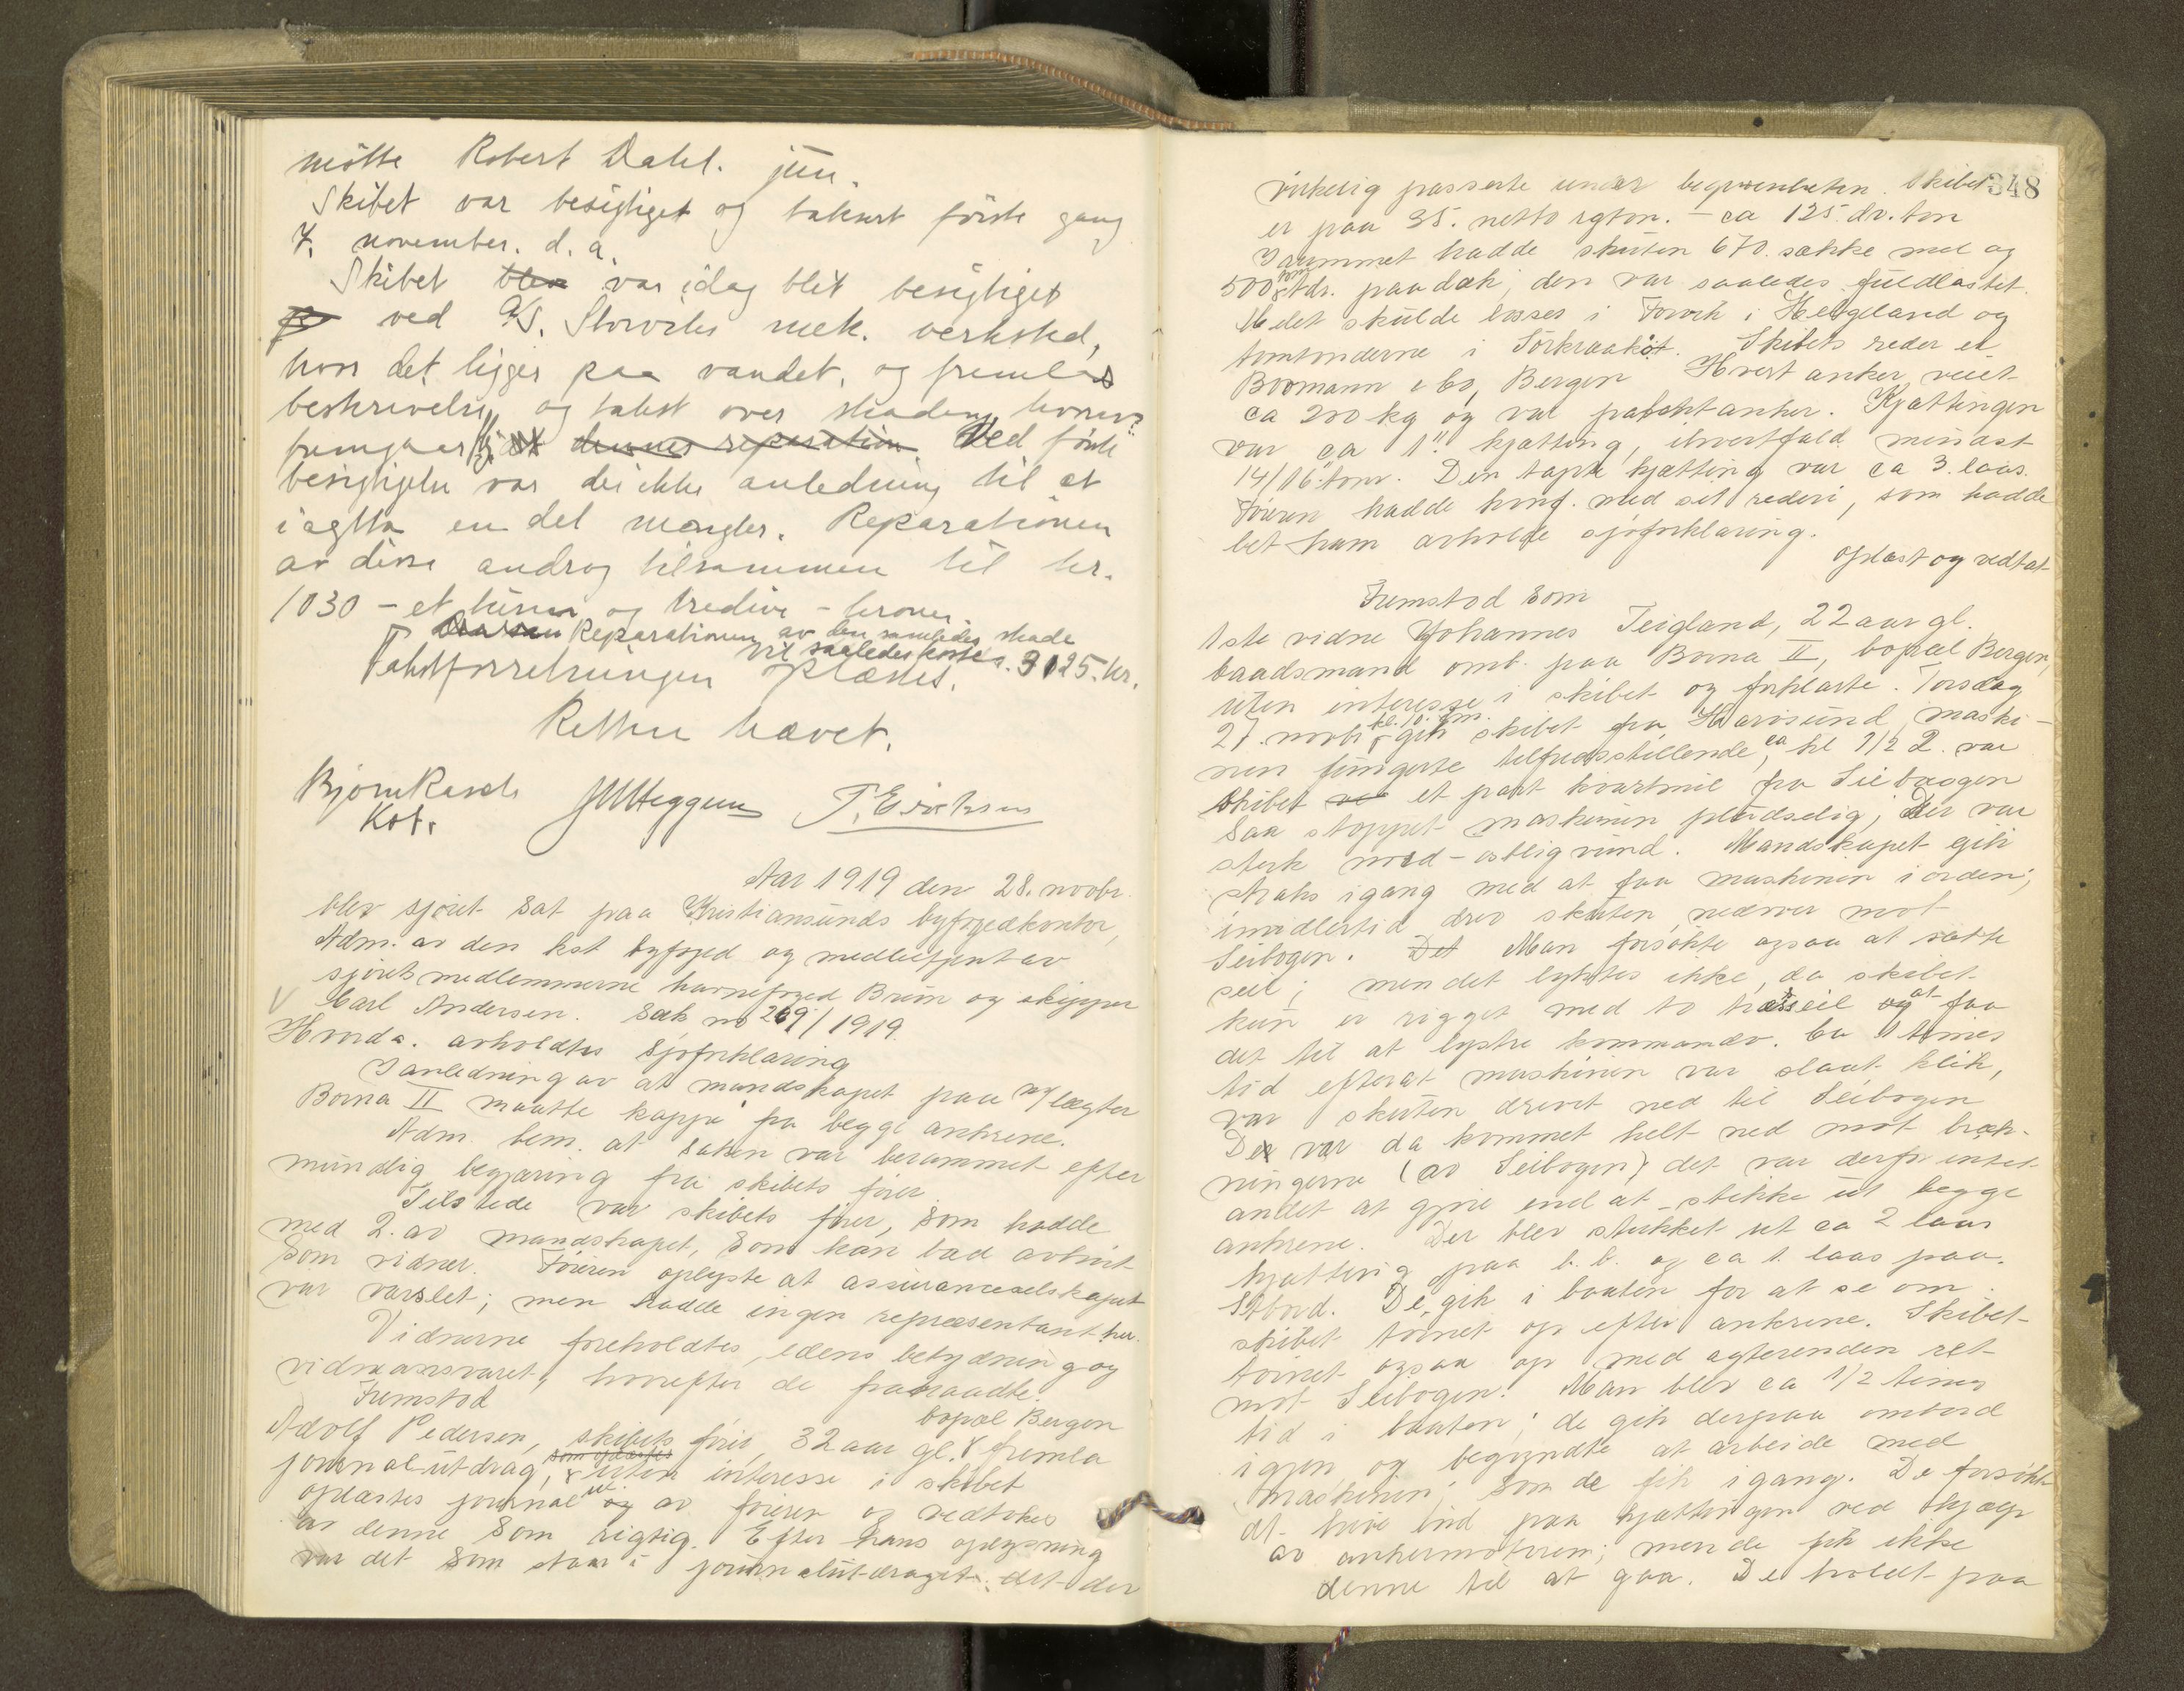 møtte Robert Dahl. jun.
Skibet var besigtiget og takseret første gang
7. november. d. a.
Skibet blev var idag blit besigtiget
på ved A/S. Storviks mek. verksted,
hvor det ligger paa vandet, og fremla
beskrivelse og takst over skaden, hvorav
fremgaar at dennes reparation. Ved første
besigtigelse var der ikke anledning til at
iagtta en del mangler. Reparationen
av disse androg tilsammen til kr.
1030 – et tusen og tredive – kroner.
Reparationen av den samlede skade
vil saaledes koste 3125. kr.
Takstforretningen oplæstes.
Retten hævet.
Bjørn Rasch J M Heggem T. Eriksen
Kst.
Aar 1919 den 28. novbr.
blev sjøret sat paa Kristiansunds byfogedkontor,
Adm. av den kst byfoged og medbetjent av
sjøretsmedlemmerne havnefoged Brun og skipper
Carl Andersen. Sak no 269/1919.
Hvorda. avholdtes Sjøforklaring
I anledning av at mandskapet paa m/lægter
Borna II maatte kappe fra begge ankrene.
Adm. bem. at Saken var berammet efter
mundig begjæring fra skibets fører.
Tilstede var skibets fører, som hadde
med 2. av mandskapet, som han bad avhørt
som vidner. Føreren oplyste at assuranceselskapet
var varslet; men hadde ingen repræsentant her.
Vidnerne foreholdtes, edens betydning og
vidneansvaret, hvorefter de fratraadte.
Fremstod
bopæl Bergen
Adolf Pedersen, skibets fører, 32 aar gl. fremla
journalutdrag, som oplæstes uten interesse i skibet
oplæstes journal og av føreren og vedtokes
av denne som rigtig. Efter hans oplysning
var det som staar i journalutdraget det der
348
virkelig passerte under begivenheten. Skibet
er paa 35. netto rgton. – ca 125. dv. ton
I rummet hadde skuten 670. sække mel og
500 tom tdr. paa dæk; den var saaledes fuldlastet.
Melet skulde losses i Forvik i Helgeland og
tomtønderne i Sørkraakøt. Skibets reder er
Boomann & Co, Bergen Hvert anker veiet
ca 200 kg og var patentanker. Kjættingen
var ca 1" kjætting, ihvertfald mindst
14/16" tom. Den tapte kjætting var ca 3. laas.
Føreren hadde konf. med sit rederi, som hadde
bet ham avholde sjøforklaring.
oplæst og vedtat
Fremstod som
1ste vidne Johannes Teigland, 22 aar gl.
baadsmand omb. paa Borna II, bopæl Bergen,
uten interesse i skibet og forklarte. Torsdag
27. novbr kl. 10. fm. gik skibet fra Kr.sund, maski-
nen fungerte tilfredsstillende, ca kl 1/2 2. var
skibet et part kvartmil fra Seibogen
Saa stoppet maskinen pludselig; Der var
sterk nord-østlig vind. Mandskapet gik
straks igang med at faa maskinen i orden;
imidlertid drev skuten nedover mot
Seibogen. Det Man forsøkte ogsaa at sætte
seil; men det lyktes ikke, da skibet
kun er rigget med to træseil og at faa
det til at lystre kommando. Ca 1 times
tid efterat maskinen var slaat klik,
var skuten drevet ned til Seibogen
De var da kommet helt ned mot bræk-
ningerne (av Seibogen) det var derfor intet
andet at gjøre end at stikke ut begge
ankrene. Der blev stukket ut ca 2 laas
kjætting paa b.b. og ca 1. laas paa.
Stbord. De gik i baaten for at se om
skibet tørnet op efter ankrene. Skibet
tørnet ogsaa op med agterenden ret
mot Seibogen. Man blev ca 1/2 times
tid i baaten; de gik derpaa ombord
igjen og begyndte at arbeide med
maskinen; som de fik igang. De forsøkte
at hive ind paa kjættingen ved hjælp
av ankermotoren; men de fik ikke
denne til at gaa. De holdt paa